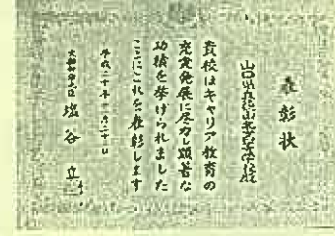 表彰状
山口県立
貴校はキャリア教育の
充実発展に尽力し顕著な
功績を挙げられました
ここにこれを表彰します
平成二十年十一月二十一日
文部科学大臣 塩谷 立